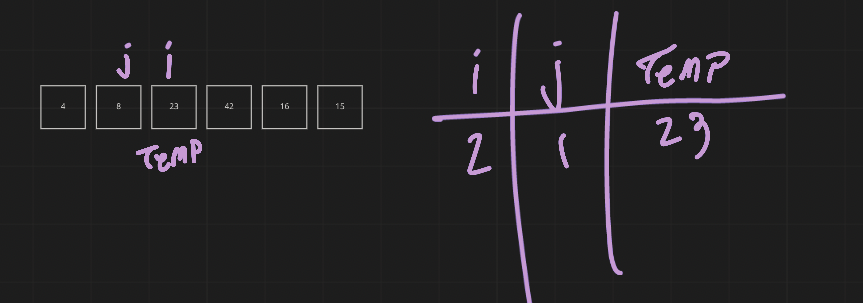 j i
4 8 23 42 16 15
TEMP
i j TEMP
2 1 23